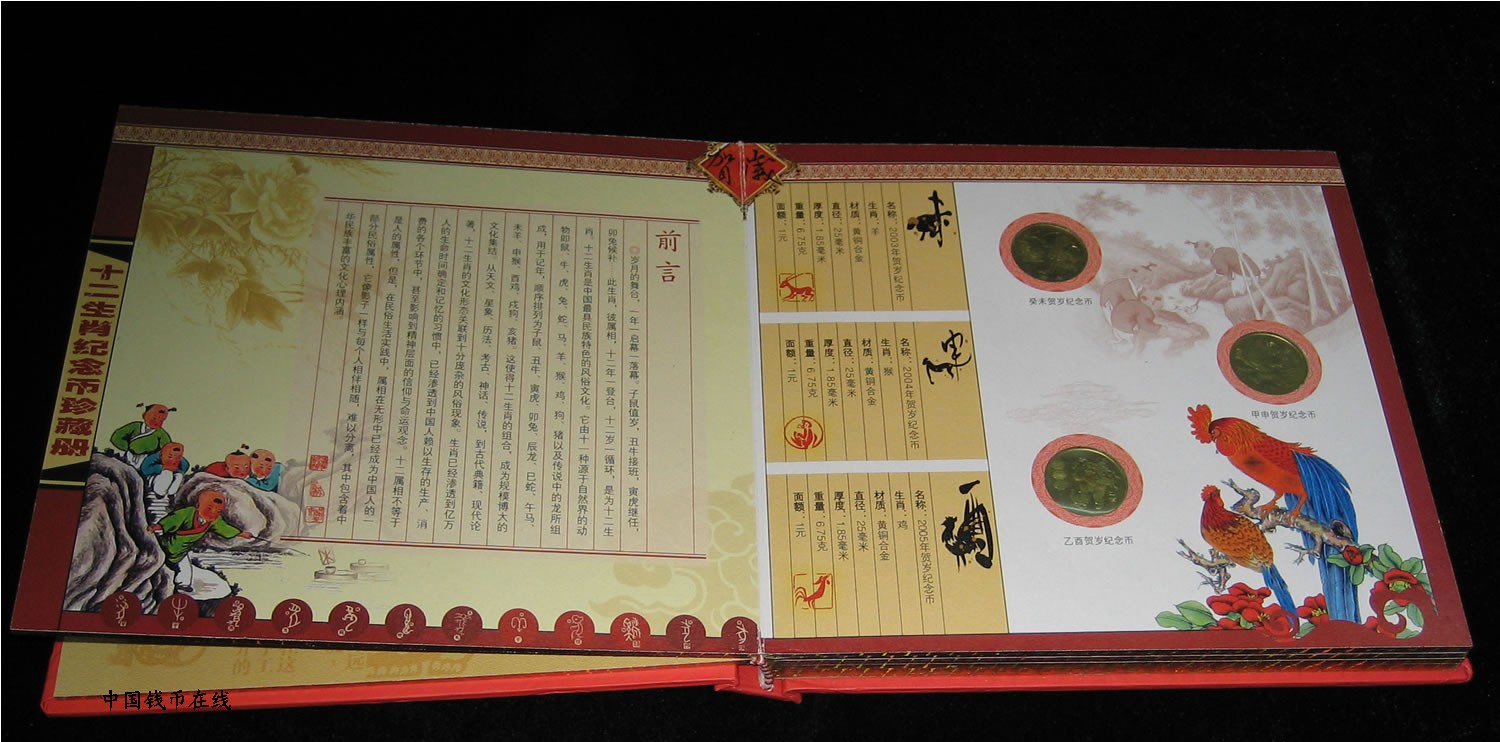 贺岁
十二生肖纪念币珍藏册
前言
◎岁月的舞台,一年一启幕一落幕。子鼠值岁,丑牛接班,寅虎继任,
卯兔候补……此生肖,彼属相,十二年一登台,十二岁一循环,是为十二生
肖。十二生肖是中国最具民族特色的风俗文化。它由十一种源于自然界的动
物即鼠、牛、虎、兔、蛇、马、羊、猴、鸡、狗、猪以及传说中的龙所组
成,用于记年,顺序排列为子鼠、丑牛、寅虎、卯兔、辰龙、巳蛇、午马、
未羊、申猴、酉鸡、戌狗、亥猪。这使得十二生肖的组合,成为规模博大的
文化集结。从天文、星象、历法、考古、神话、传说,到古代典籍、现代论
著,十二生肖的文化形态关联到十分庞杂的风俗现象。生肖已经渗透到亿万
人的生命时间确定和记忆的习惯中,已经渗透到中国人赖以生存的生产、消
费的各个环节中,甚至影响到精神层面的信仰与命运观念。十二属相不等于
是人的属性,但是,在民俗生活实践中,属相在无形中已经成为中国人的一
部分民俗属性,它像影子一样与每个人相伴相随,难以分离,其中包含着中
华民族丰富的文化心理内涵。
名称:2003年贺岁纪念币
生肖:羊
材质:黄铜合金
直径:25毫米
厚度:1.85毫米
重量:6.75克
面额:1元
癸未贺岁纪念币
名称:2004年贺岁纪念币
生肖:猴
材质:黄铜合金
直径:25毫米
厚度:1.85毫米
重量:6.75克
面额:1元
甲申贺岁纪念币
名称:2005年贺岁纪念币
生肖:鸡
材质:黄铜合金
直径:25毫米
厚度:1.85毫米
重量:6.75克
面额:1元
乙酉贺岁纪念币
的工这
远
中国钱币在线